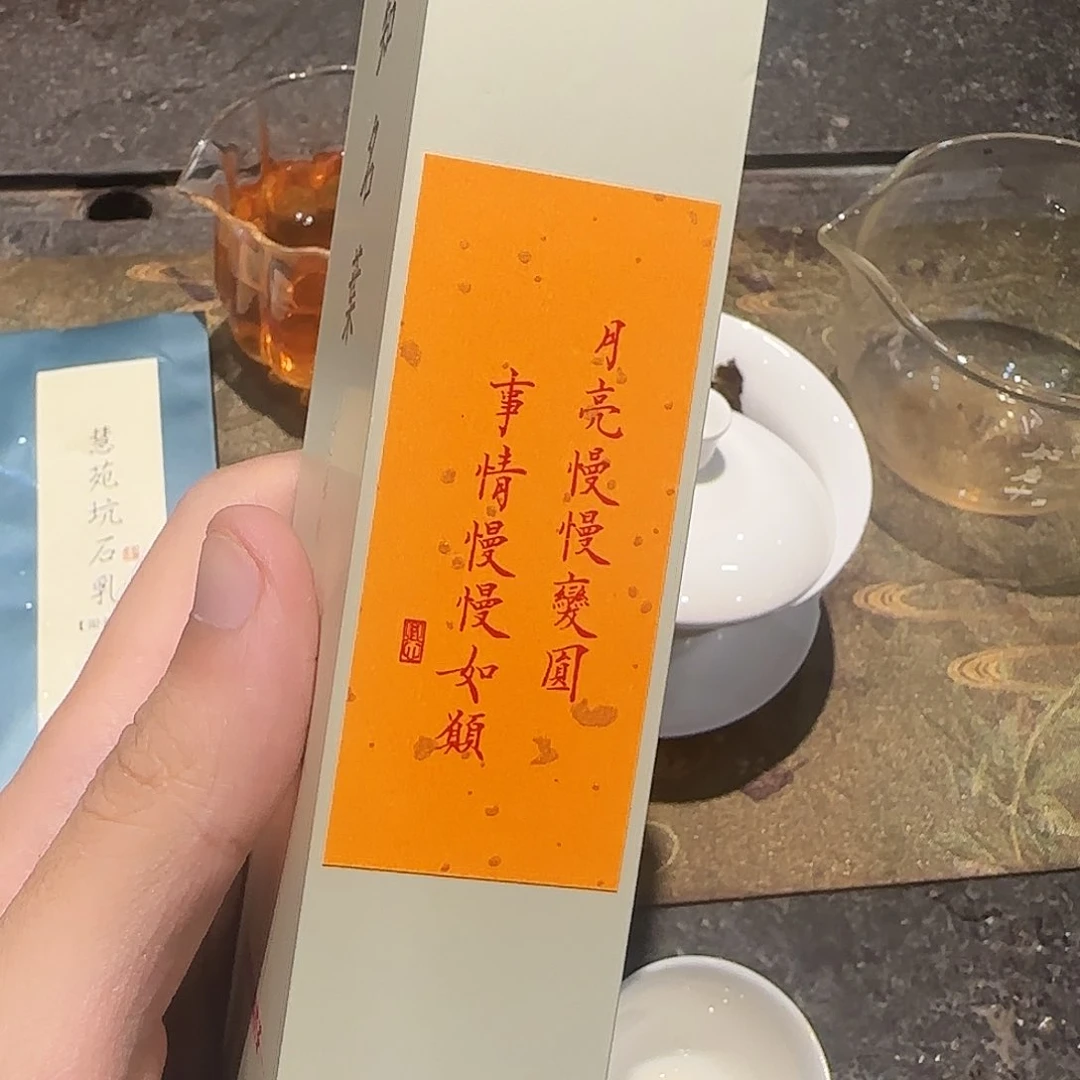 月亮慢慢變圓
事情慢慢如願
慧苑坑石乳